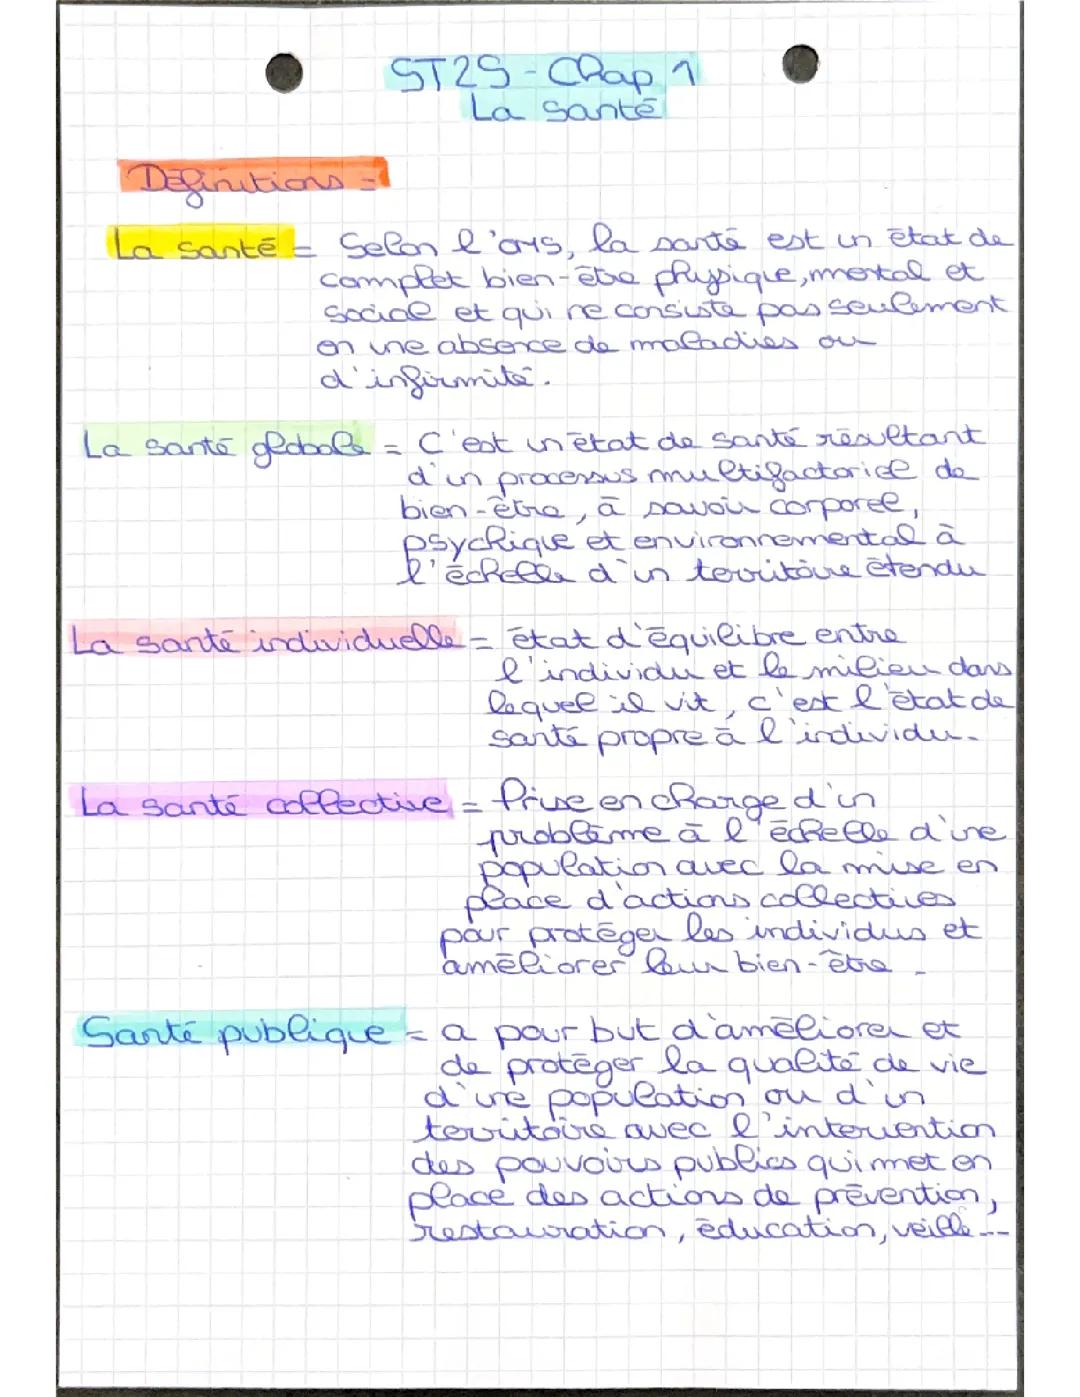 ST2S - Chap 1
La santé
Définitions =
La santé = Selon l'OMS, la santé est un état de
complet bien-être physique, mental et
social et qui ne consiste pas seulement
en une absence de maladies ou
d'infirmité.
La santé globale = C'est un état de santé résultant
d'un processus multifactoriel de
bien-être, à savoir corporel,
psychique et environnemental à
l'échelle d'un territoire étendu
La santé individuelle = état d'équilibre entre
l'individu et le milieu dans
lequel il vit, c'est l'état de
santé propre à l'individu.
La santé collective = Prise en charge d'un
problème à l'échelle d'une
population avec la mise en
place d'actions collectives
pour protéger les individus et
améliorer leur bien-être.
Santé publique = a pour but d'améliorer et
de protéger la qualité de vie
d'une population ou d'un
territoire avec l'intervention
des pouvoirs publics qui met en
place des actions de prévention,
restauration, éducation, veille...